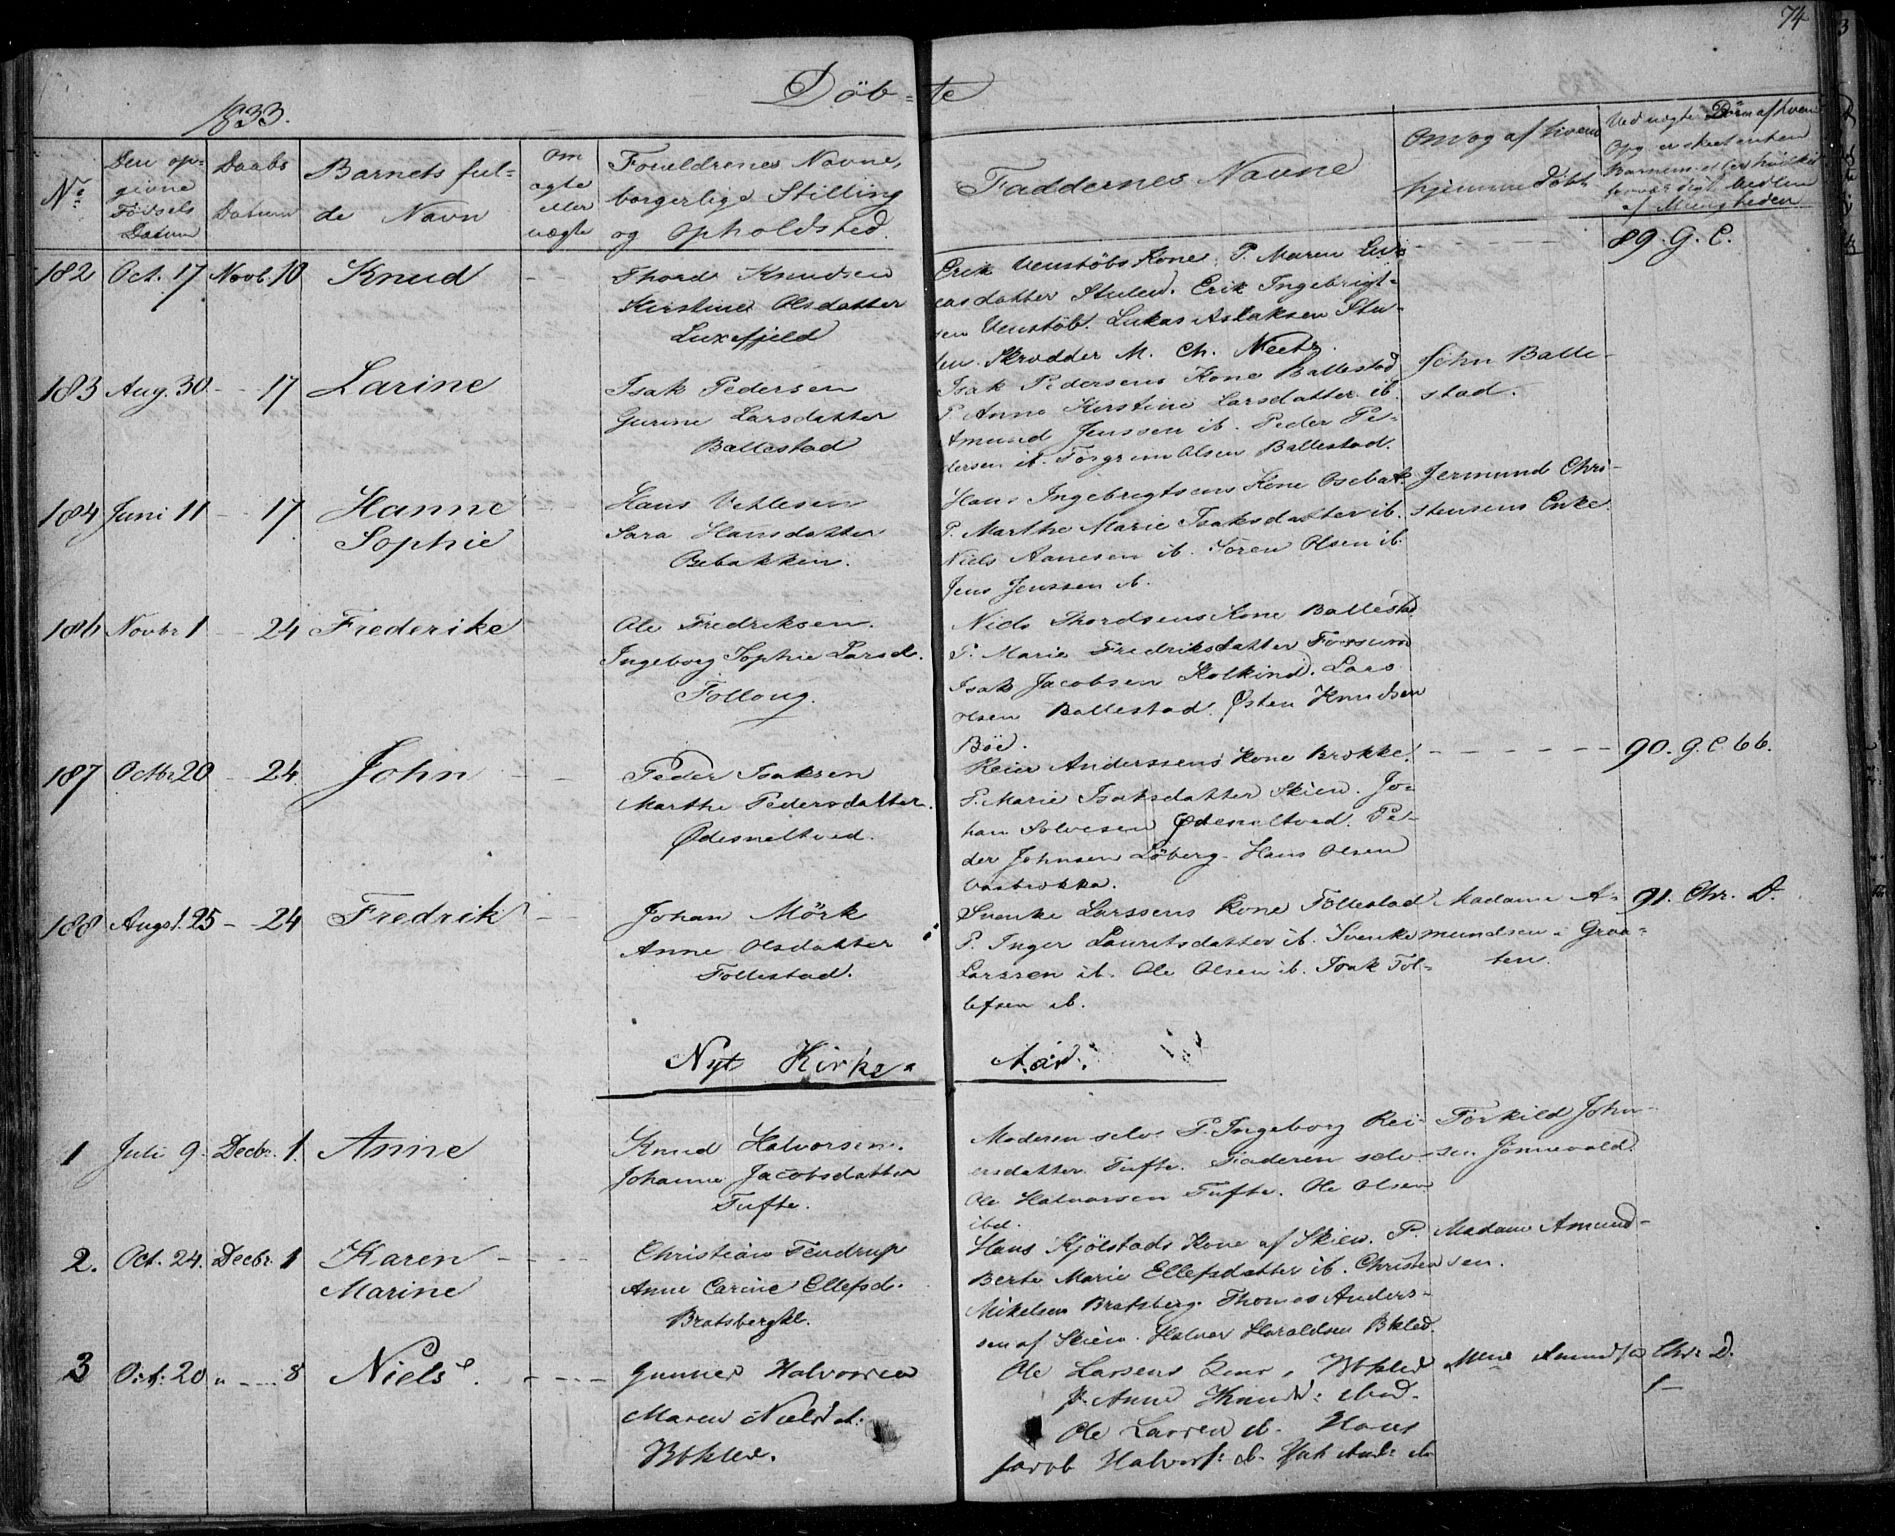 74
Döb-te
1833.
No
Den op-
givne
Födsels
Datum
Daabs
Datum
Barnets ful-
de Navn
om
ægte
eller
uægte
Forældrenes Navne,
borgerlige Stilling
og Opholdsted.
Faddernes Navne
Om og af hvem
hjemmedöbt
Ved uægte Börn af hvem
182 Oct. 17 Novb. 10 Knud
Thord Knudsen
Kirstine Olsdatter
Luxefjeld
Erik Venstöbs Kone. P. Maren Lu-
casdatter Stulen. Erik Ingebrigt-
sen Venstöb. Lukas Aslaksen Stu-
len. Skrædder M. Ch.
89. G. C.
183 Aug. 30 - - 17 Larine
Isak Pedersen
Gurine Larsdatter
Ballestad
Isak Pedersens Kone Ballestad
P. Anne Kirstine Larsdatter ib.
Amund Jenssen ib. Peder Pe-
dersen ib. Torgrim Olsen Ballestad.
John Balle-
stad.
184 Juni 11 - - 17 Hanne
Sophie
Hans Vetlesen
Sara Hansdatter
Bebakken.
Hans Ingebrigtsens Kone Osebak.
P. Marthe Marie Isaksdatter ib.
Niels Aanesen ib. Sören Olsen ib.
Jens Jenssen ib.
Jermund Chri-
stensens Enke.
186 Novbr 1 - 24 Frederike
Ole Fredriksen.
Ingeborg Sophie Larsd.
Follaug.
Niels Thordsens Kone Ballestad
P. Marie Fredriksdatter Fossum
Isak Jacobsen Kolkind. Lars
Olsen Ballestad. Östen Knudsen
Böe.
187 Octbr 20 - 24. John
Peder Isaksen
Marthe Pedersdatter.
Ødesneltved.
Reier Anderssens Kone Brokke.
P. Marie Isaksdatter Skien. Jo-
han Solvesen Ødesneltved. Pe-
der Johnsen Löberg. Hans Olsen
90. G. C. 66.
188 Augst. 25 - 24 Fredrik
Johan Mörk
Anne Olsdatter
Follestad.
Svenke Larssens Kone Follestad
P. Inger Lauritsdatter ib. Svenke
Larssen ib. Ole Olsen ib. Isak Tol-
lefsen ib.
Madame A-
mundsen i Graa-
ten.
91. Chr. D.
Nyt Kirke-Aar.
1 Juli 9. Decbr. 1. Anne
Knud Halvorsen.
Johanne Jacobsdatter
Tufte.
Moderen selv. P. Ingeborg Rei-
ersdatter Tufte. Faderen selv.
Ole Halvorsen Tufte. Ole Olsen
ibd.
Torkild John-
sen Jönnevald.
2. Oct. 24. Decbr. 1 Karen
Marine
Christian Tendrup
Anne Carine Ellefsd.
Bratsbergkl.
Hans Kjölstads Kone af Skien. P.
Berte Marie Ellefsdatter ib. Christen
Mikelsen Bratsberg. Thomas Anders-
sen af Skien. Halvor Haraldsen Bkled.
Madame Amund-
sen.
3 Oct. 20 " - - 8 Niels.
Gunner Halvorsen
Maren Nielsd.
Ole Larsens
p. Anne Knudsd: ibid.
Ole Larsen ib. Hans
Jacob Halvors: ib.
Chr. D.